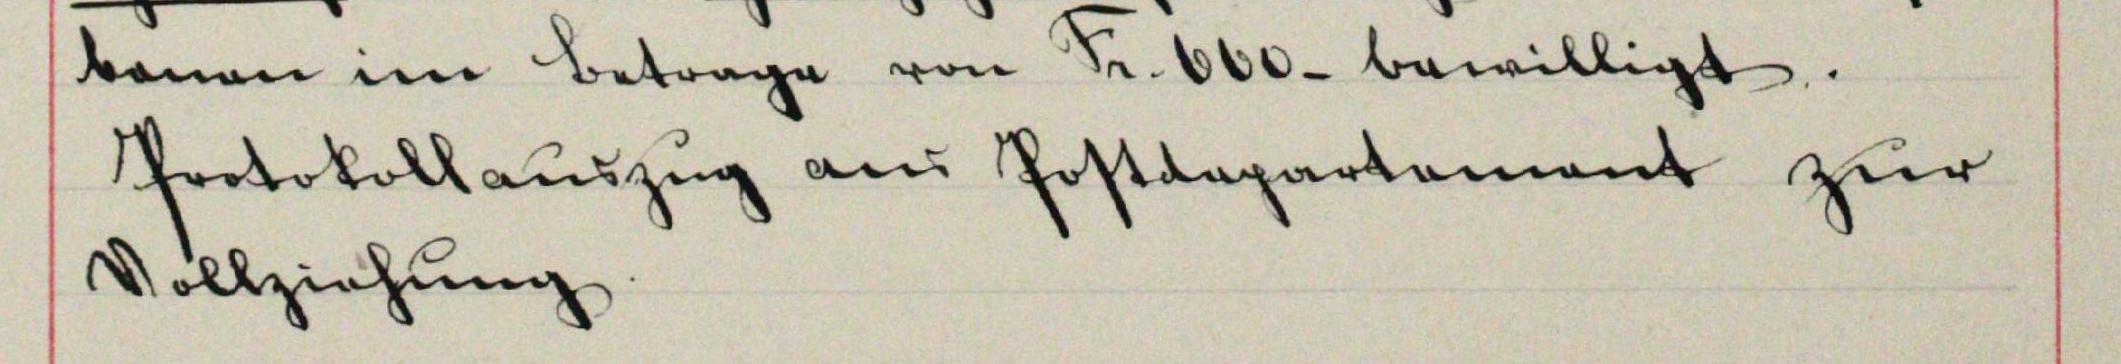 benen im Betrage von Fr. 660.- bewilligt.
Protokollauszug ans Postdepartement zur
Vollziehung.